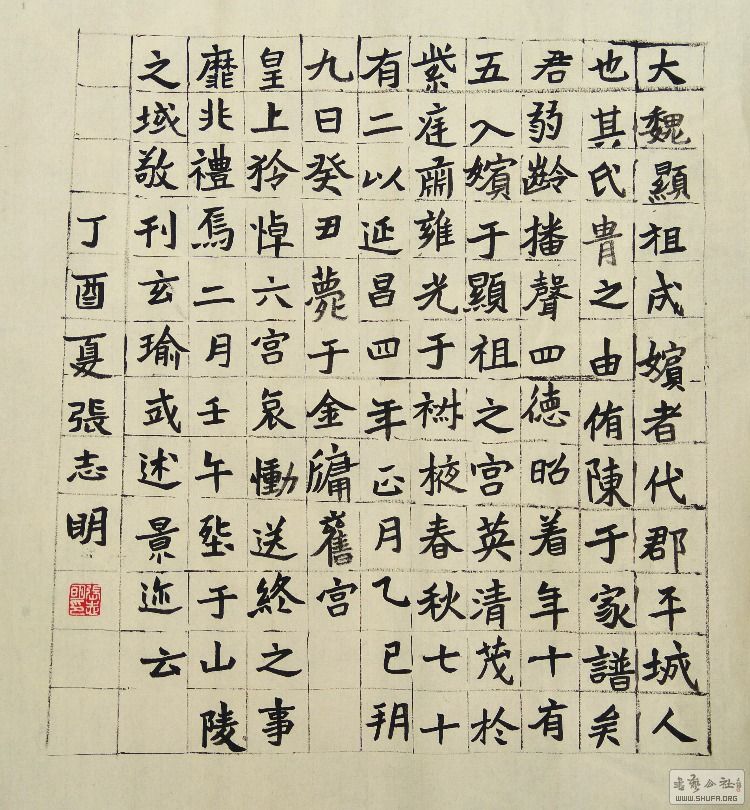 大魏顯祖成嬪者代郡平城人
也其氏胄之由侑陳于家譜矣
君弱齡播聲四德昭着年十有
五入嬪于顯祖之宮英清茂於
紫庭肅雍光于椒掖春秋七十
有二以延昌四年正月乙巳朔
九日癸丑薨于金牅舊宮
皇上矜悼六宮哀慟送終之事
靡非禮焉二月壬午塟于山陵
之域敬刊玄瑜式述景迹云
丁酉夏張志明
張志明印
書藝公社
WWW.SHUFA.ORG